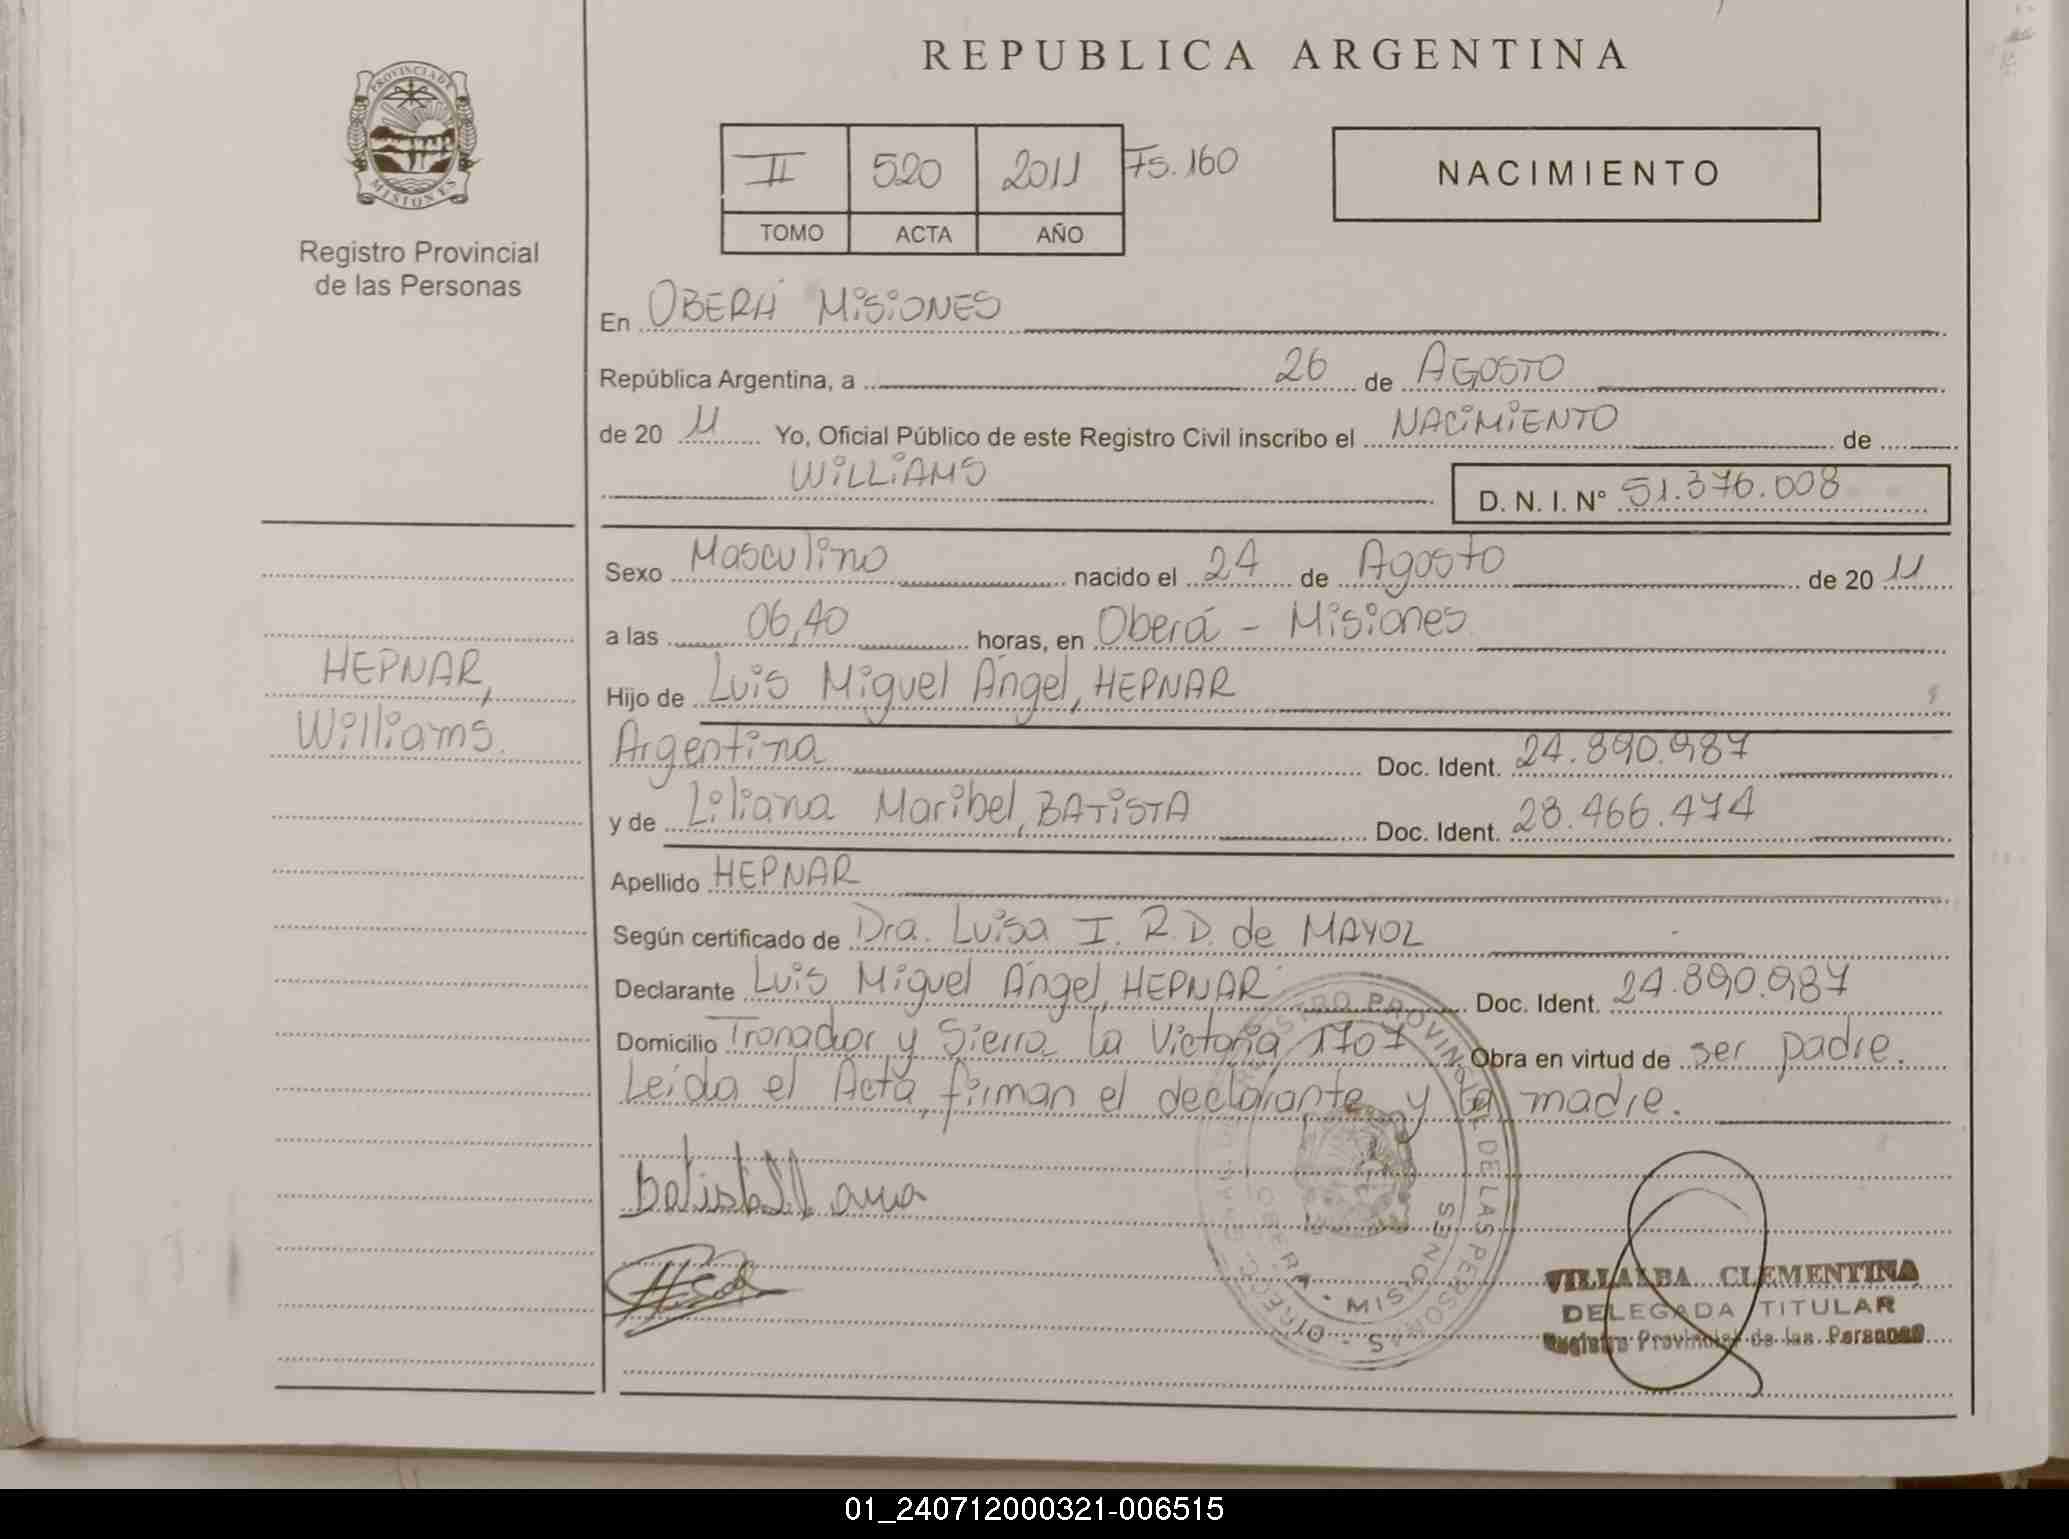 REPUBLICA ARGENTINA
PROVINCIA DE MISIONES
Registro Provincial
de las Personas
II 520 2011 Fs. 160
TOMO ACTA AÑO
NACIMIENTO
En OBERÁ MISIONES
República Argentina, a 26 de AGOSTO
de 20 11 Yo, Oficial Público de este Registro Civil inscribo el NACIMIENTO de
WILLIAMS D. N. I. N° 51.376.008
Sexo Masculino nacido el 24 de Agosto de 20 11
a las 06,40 horas, en Oberá - Misiones
HEPNAR,
Williams.
Hijo de Luis Miguel Ángel, HEPNAR
Argentina Doc. Ident. 24.890.987
y de Liliana Maribel, BATISTA Doc. Ident. 28.466.474
Apellido HEPNAR
Según certificado de Dra. Luisa I. R. D. de MAYOL
Declarante Luis Miguel Ángel, HEPNAR Doc. Ident. 24.890.987
Domicilio Tronador y Sierra la Victoria 1707 Obra en virtud de ser padre.
Leída el Acta, firman el declarante y la madre.
REGISTRO PROVINCIAL DE LAS PERSONAS
OBERA - MISIONES
VILLALBA CLEMENTINA
DELEGADA TITULAR
Registro Provincial de las Personas
01_240712000321-006515